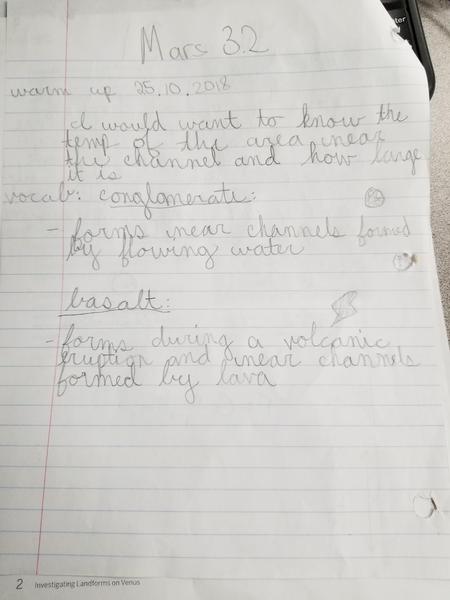 Mars 3.2
warm up 25.10.2018
I would want to know the
temp of the area near
the channel and how large
it is
vocab: conglomerate:
- forms near channels formed
by flowing water
basalt:
- forms during a volcanic
eruption and near channels
formed by lava
2 Investigating Landforms on Venus